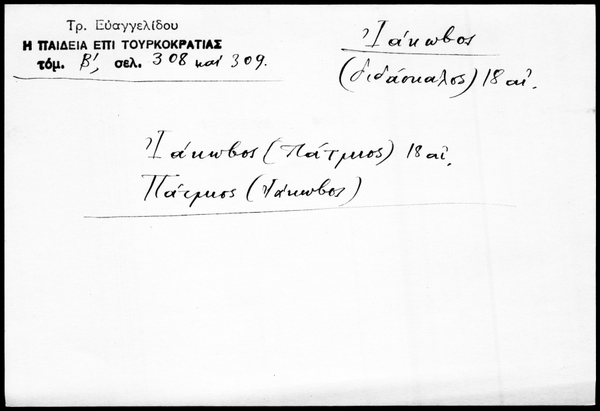 Τρ. Εὐαγγελίδου
Η ΠΑΙΔΕΙΑ ΕΠΙ ΤΟΥΡΚΟΚΡΑΤΙΑΣ
τόμ. Β', σελ. 308 καί 309.
Ἰάκωβος
(διδάσκαλος) 18 αἰ.
Ἰάκωβος (Πάτμιος) 18 αἰ.
Πάτμιος (Ἰάκωβος)